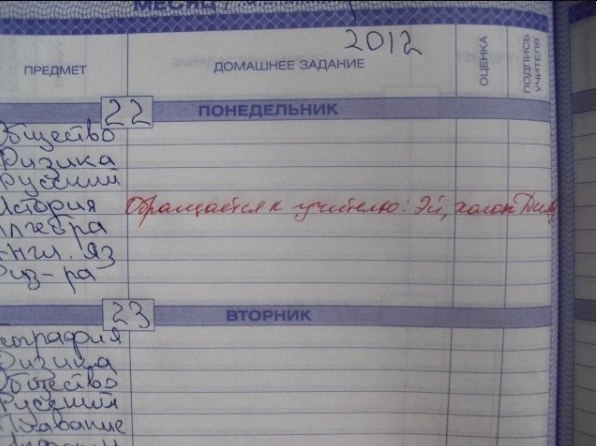 МЕСЯЦ
2012
ПРЕДМЕТ ДОМАШНЕЕ ЗАДАНИЕ ОЦЕНКА ПОДПИСЬ УЧИТЕЛЯ
22 ПОНЕДЕЛЬНИК
Общество
Физика
Русский
История Обращается к учителю: Эй, холоп
Алгебра
Англ. яз
Физ-ра
23 ВТОРНИК
География
Физика
Общество
Русский
Плавание